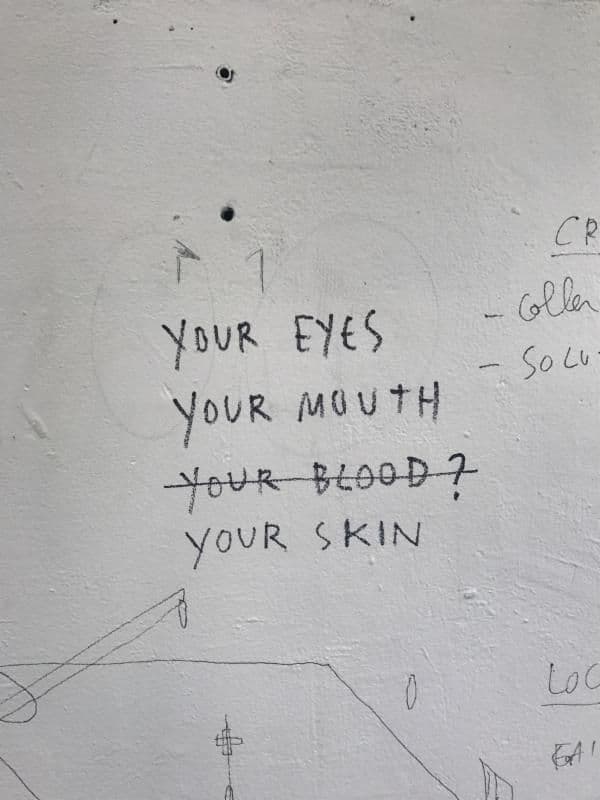 YOUR EYES
YOUR MOUTH
YOUR BLOOD?
YOUR SKIN
CR
- Collen
- SOLU
LOC